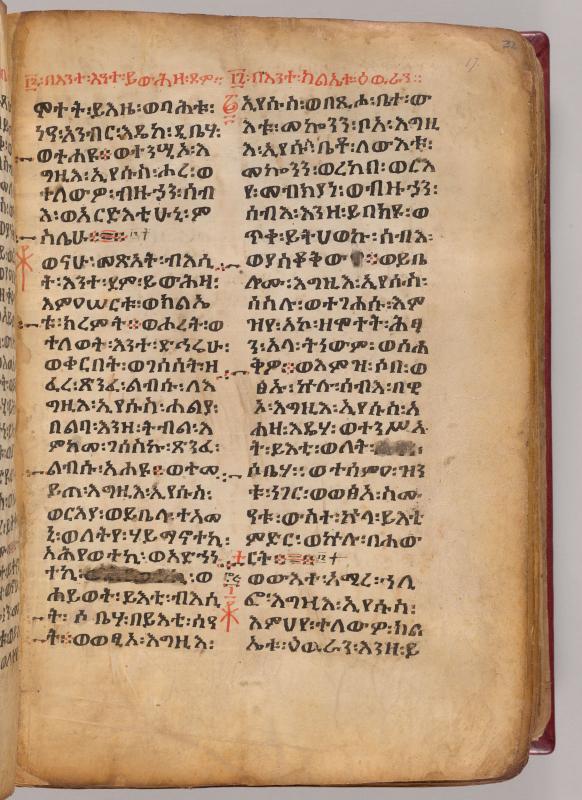 ፲፮፡በእንተ፡እንተ፡ይውሕዘ፡ደም። ፲፯፡በእንተ፡ክልኤቱ፡ዕዉራን።
ሞተት፡ይእዜ፡ወባሕቱ፡
ነዓ፡አንብር፡እዴከ፡ዲቤሃ፡
ወተሐዩ። ወተንሢኦ፡እ
ግዚእ፡ኢየሱስ፡ሖረ፡ወ
ተለውዎ፡ብዙኃን፡ሰብ
እ፡ወአርድእቲሁኒ፡ም
ስሌሁ።
ወናሁ፡መጽአት፡ብእሲ
ት፡እንተ፡ደም፡ይውሕዛ፡
እምዐሠርቱ፡ወክልኤ
ቱ፡ክረምት። ወሖረት፡ወ
ተለወት፡እንተ፡ድኅሬሁ፡
ወቀርበት፡ወገሰሰት፡ዘ
ፈረ፡ጽንፈ፡ልብሱ፡ለእ
ግዚእ፡ኢየሱስ፡ሐልያ፡
በልባ፡እንዘ፡ትብል፡እ
ምከመ፡ገሰስኩ፡ጽንፈ፡
ልብሱ፡አሐዩ። ወተመ
ይጠ፡እግዚእ፡ኢየሱስ፡
ወርእየ፡ወይቤላ፡ተአመ
ኒ፡ወለትየ፡ሃይማኖተኪ፡
አሕየወተኪ፡ወአድኀነ
ተኪ፡ ፡ወ
ሐይወት፡ይእቲ፡ብእሲ
ት፡ሶቤሃ፡በይእቲ፡ሰዓ
ት። ወወፂአ፡እግዚእ፡
ኢየሱስ፡ወበጺሖ፡ቤተ፡መ
እቱ፡መኰንን፡ቦአ፡እግዚ
እ፡ኢየሱስ፡ቤቶ፡ለውእቱ፡
መኰንን፡ወረከበ፡ወርእ
የ፡መብክያነ፡ወብዙኃን፡
ሰብእ፡እንዘ፡ይበክዩ፡ወ
ጥቀ፡ይትሀወኩ፡ሰብእ፡
ወያስቆቅው፡ ፡ወይቤ
ሎሙ፡እግዚእ፡ኢየሱስ፡
ሰስሉ፡ወተገሐሱ፡እም
ዝየ፡አኮ፡ዘሞተት፡ሕፃ
ን፡አላ፡ትነውም፡ወሰሐ
ቅዎ። ወእምዝ፡ሶበ፡ወ
ፅኡ፡ኵሉ፡ሰብእ፡በዊ
ኦ፡እግዚእ፡ኢየሱስ፡አ
ሐዘ፡እዴሃ፡ወተንሥአ
ት፡ይእቲ፡ወለት፡ ፡
ሶቤሃ። ወተሰምዐ፡ዝን
ቱ፡ነገር፡ወወፅአ፡ስመ
ዓቱ፡ውስተ፡ኵላ፡ይእቲ
ምድር፡ወኵሉ፡በሐው
ርት።
ወውእተ፡አሚረ፡ኀሊ
ፎ፡እግዚእ፡ኢየሱስ፡
እምህየ፡ተለውዎ፡ክል
ኤቱ፡ዕዉራን፡እንዘ፡ይ